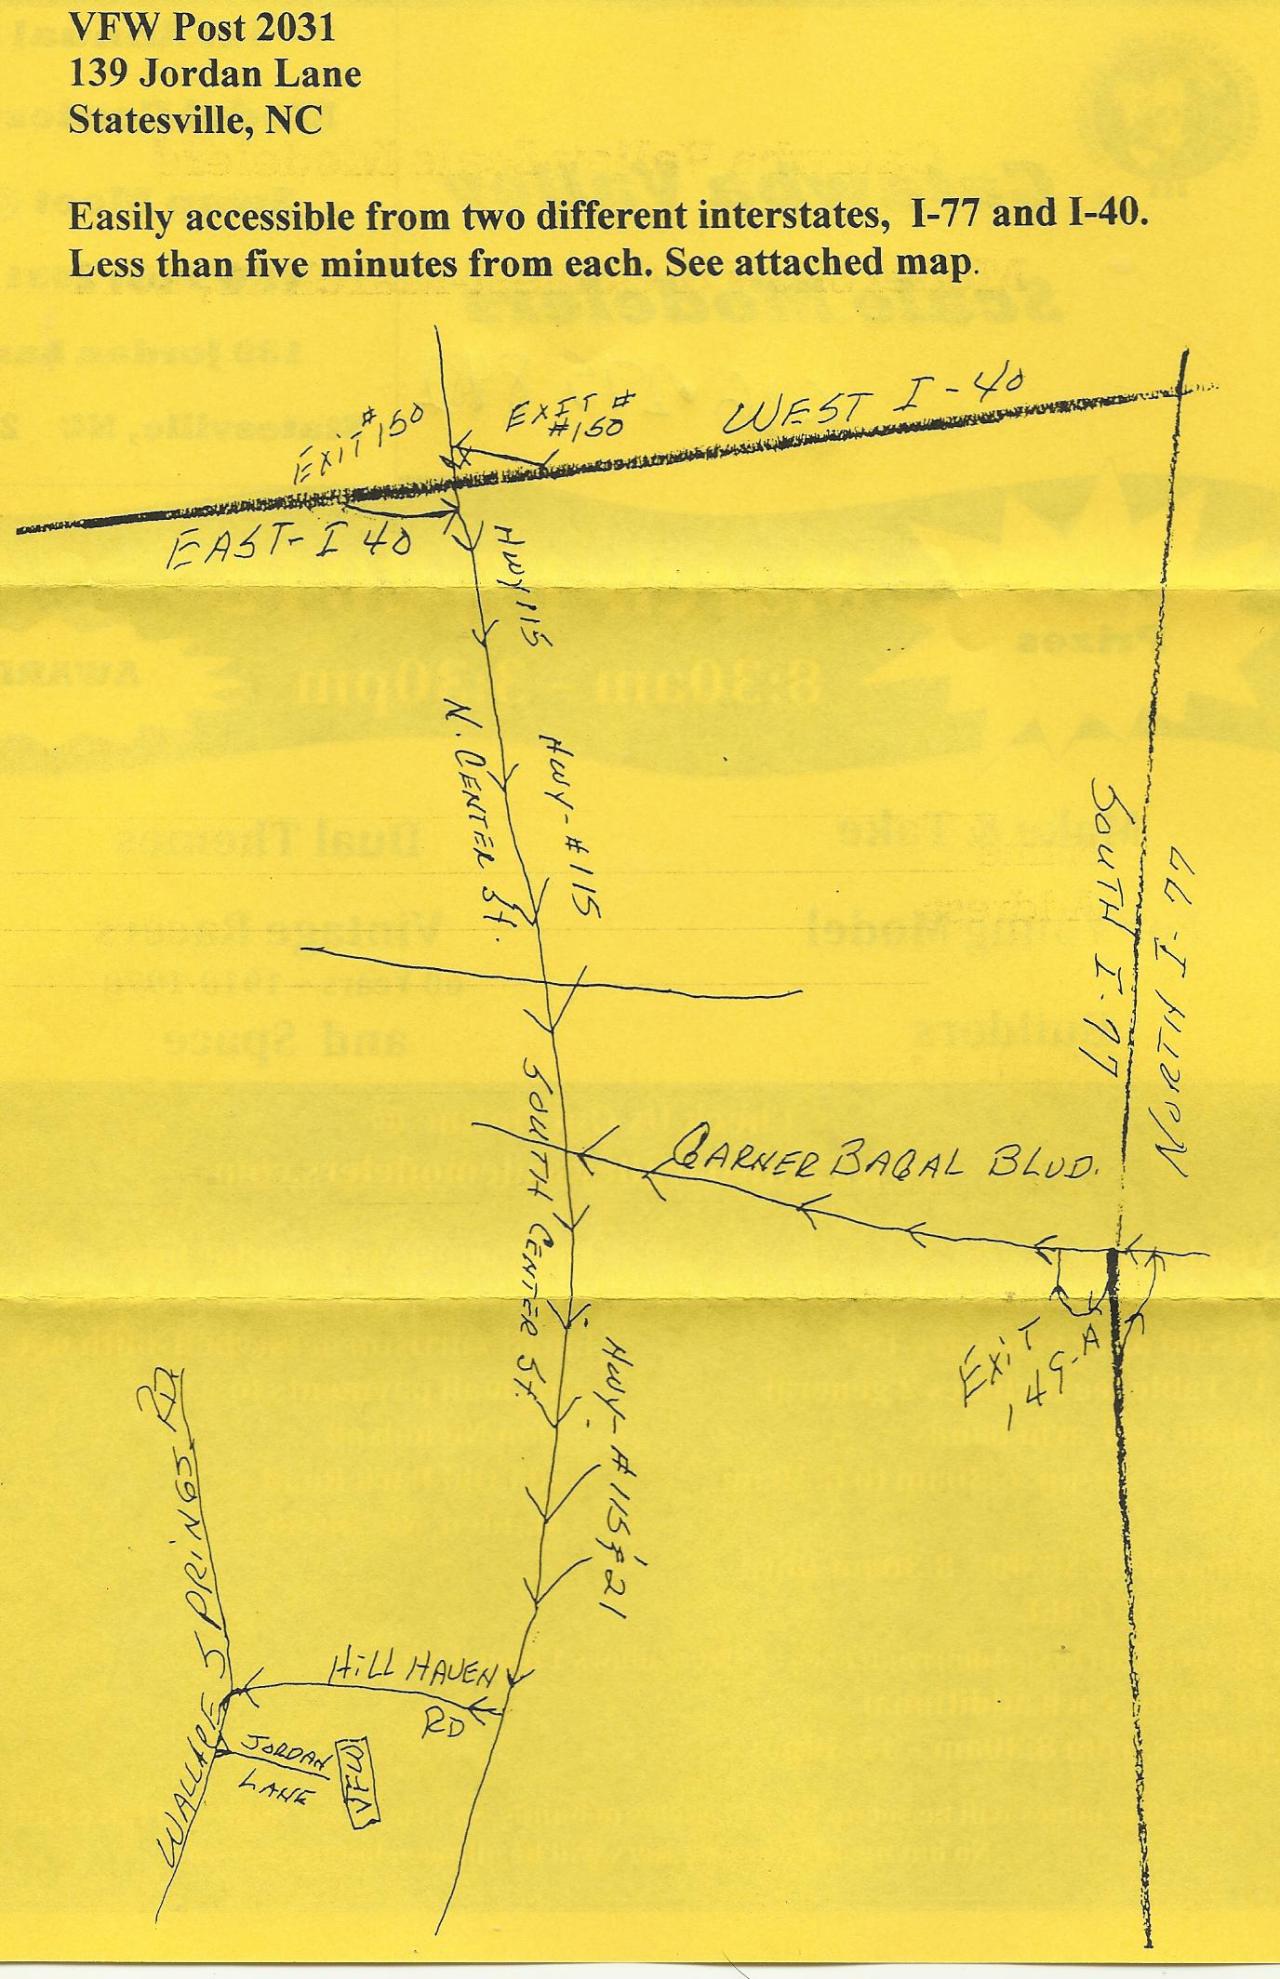 VFW Post 2031
139 Jordan Lane
Statesville, NC
Easily accessible from two different interstates, I-77 and I-40.
Less than five minutes from each. See attached map.
EXIT #150
EXIT #
#150
WEST I-40
EAST-I 40
HWY 115
N. CENTER St.
HWY-#115
SOUTH I-77
NORTH I-77
SOUTH CENTER St.
GARNER BAGAL BLVD.
EXIT
49-A
HWY-#115 & 21
WALLACE SPRINGS RD
HILL HAVEN
RD
JORDAN
LANE
VFW